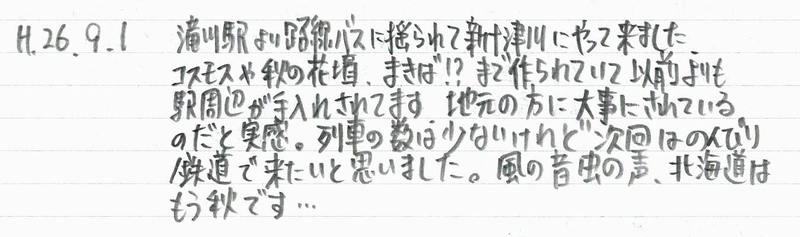 H.26.9.1 滝川駅より路線バスに揺られて新十津川にやって来ました、
コスモスや秋の花壇、まきば!?まで作られていて以前よりも
駅周辺が手入れされてます 地元の方に大事にされている
のだと実感。列車の数は少ないけれど次回はのんびり
鉄道で来たいと思いました。風の音虫の声、北海道は
もう秋です…